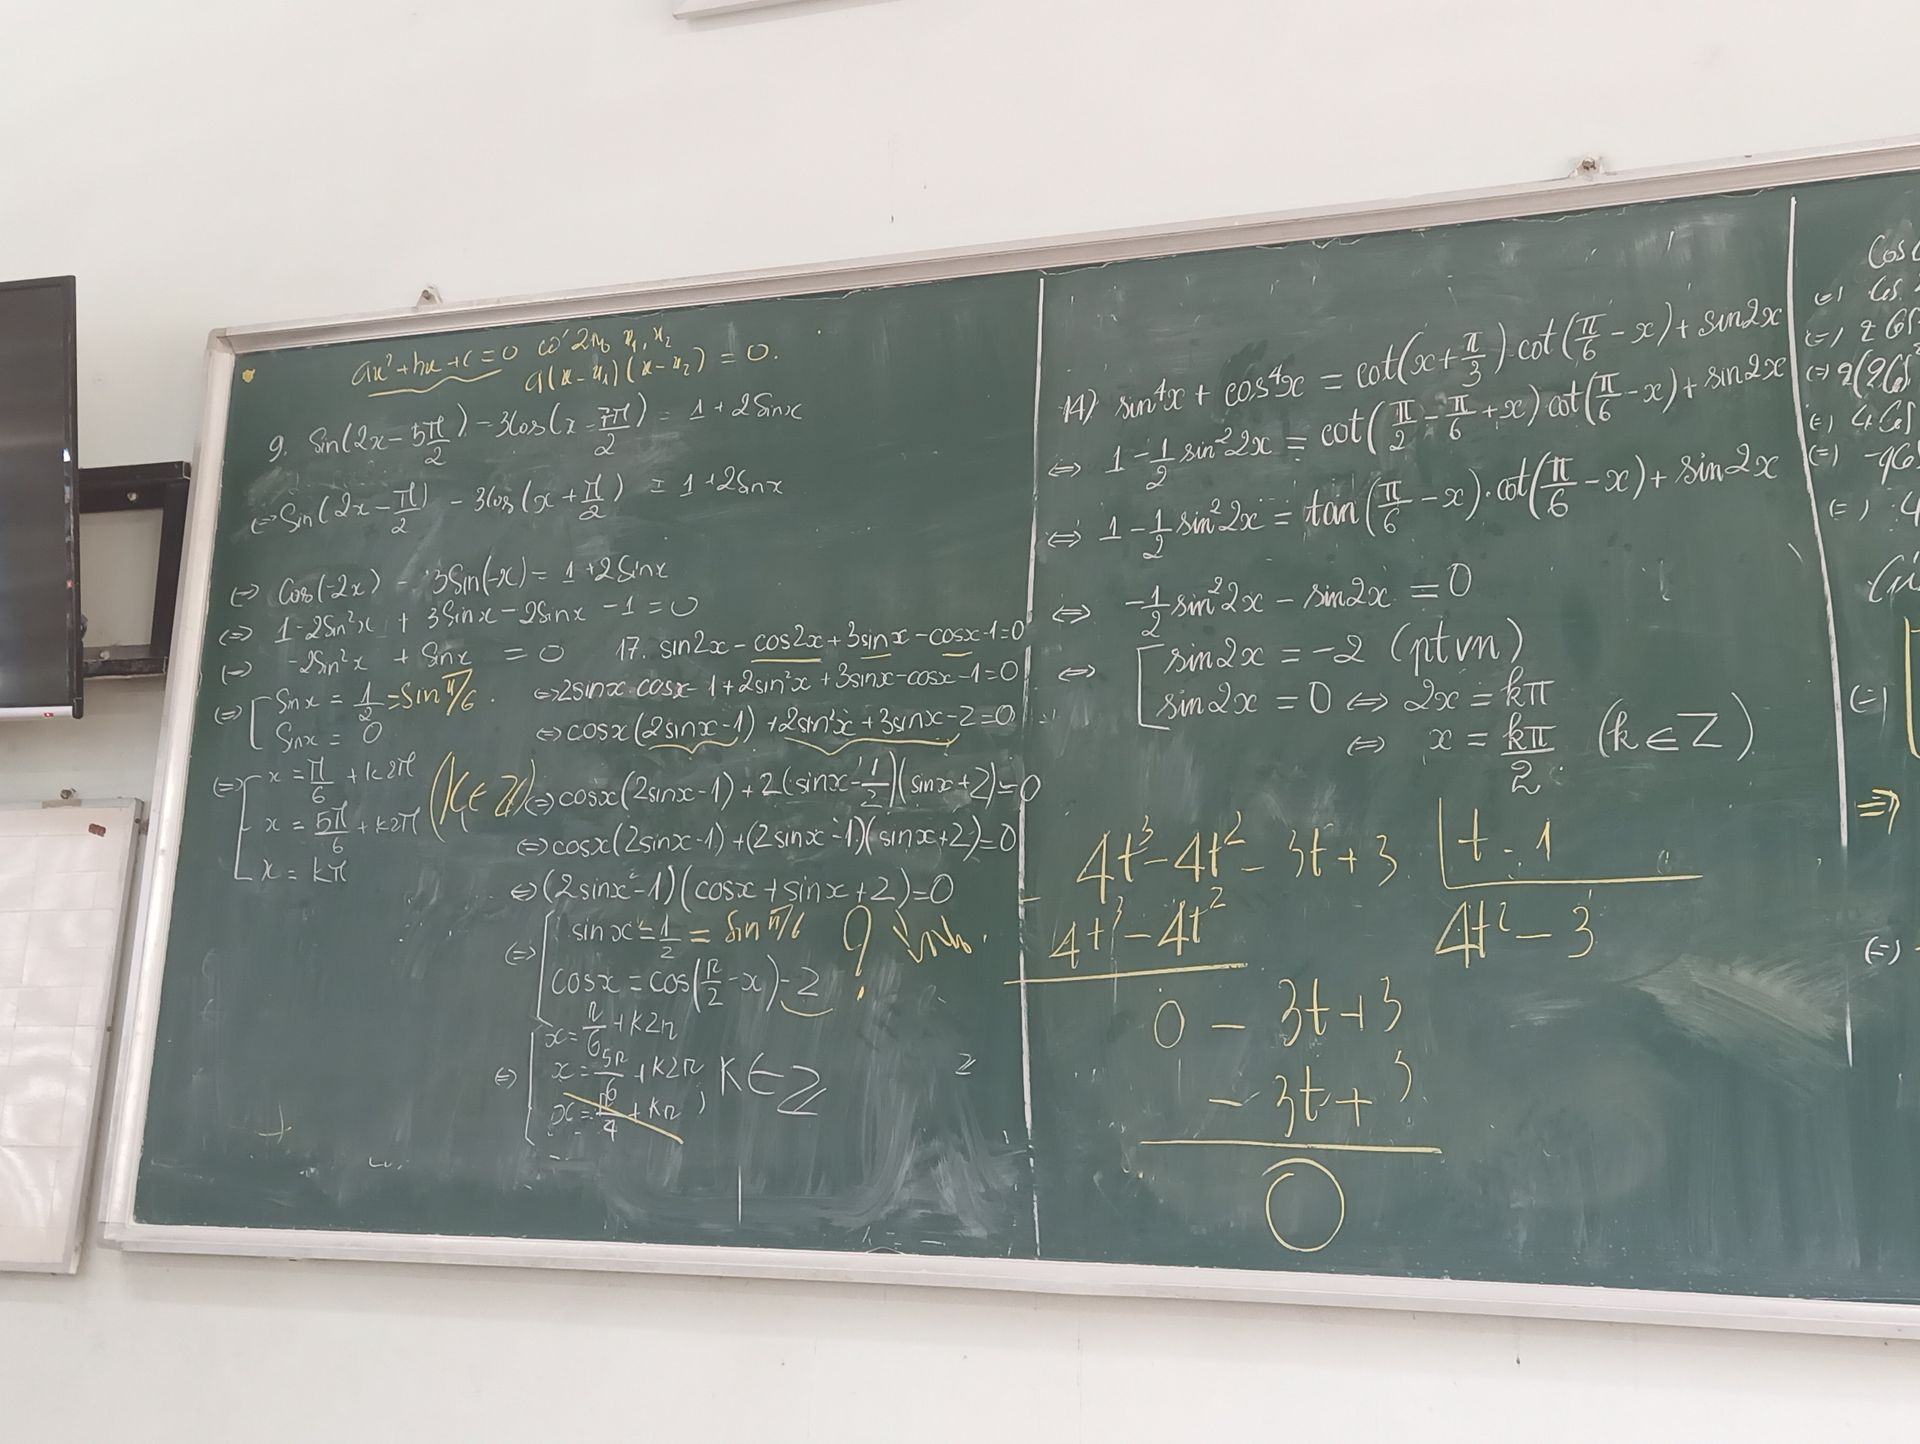 ax² + bx + c = 0 có 2 n₀ x₁, x₂
a(x - x₁)(x - x₂) = 0.
9. Sin(2x - 5π/2) - 3Cos(x - 7π/2) = 1 + 2Sinx
⇔ Sin(2x - π/2) - 3Cos(x + π/2) = 1 + 2Sinx
⇔ Cos(-2x) - 3Sin(-x) = 1 + 2Sinx
⇔ 1 - 2Sin²x + 3Sinx - 2Sinx - 1 = 0
⇔ -2Sin²x + Sinx = 0
⇔ [ Sinx = 1/2 = Sin π/6.
Sinx = 0
⇔ [ x = π/6 + k2π
x = 5π/6 + k2π (k ∈ Z)
x = kπ
17. sin2x - cos2x + 3sinx - cosx - 1 = 0
⇔ 2sinx cosx - 1 + 2sin²x + 3sinx - cosx - 1 = 0
⇔ cosx(2sinx - 1) + 2sin²x + 3sinx - 2 = 0
⇔ cosx(2sinx - 1) + 2(sinx - 1/2)(sinx + 2) = 0
⇔ cosx(2sinx - 1) + (2sinx - 1)(sinx + 2) = 0
⇔ (2sinx - 1)(cosx + sinx + 2) = 0
⇔ [ sinx = 1/2 = Sin π/6
cosx = cos(π/2 - x) - 2 ?
⇔ [ x = π/6 + k2π
x = 5π/6 + k2π, k ∈ Z
x = π/4 + kπ
14) sin⁴x + cos⁴x = cot(x + π/3).cot(π/6 - x) + sin2x
⇔ 1 - 1/2 sin²2x = cot(π/2 - π/6 + x) cot(π/6 - x) + sin2x
⇔ 1 - 1/2 sin²2x = tan(π/6 - x).cot(π/6 - x) + sin2x
⇔ -1/2 sin²2x - sin2x = 0
⇔ [ sin2x = -2 (ptvn)
sin2x = 0 ⇔ 2x = kπ
⇔ x = kπ/2 (k ∈ Z)
4t³ - 4t² - 3t + 3 | t - 1
- 4t³ - 4t² 4t² - 3
0 - 3t + 3
- 3t + 3
0